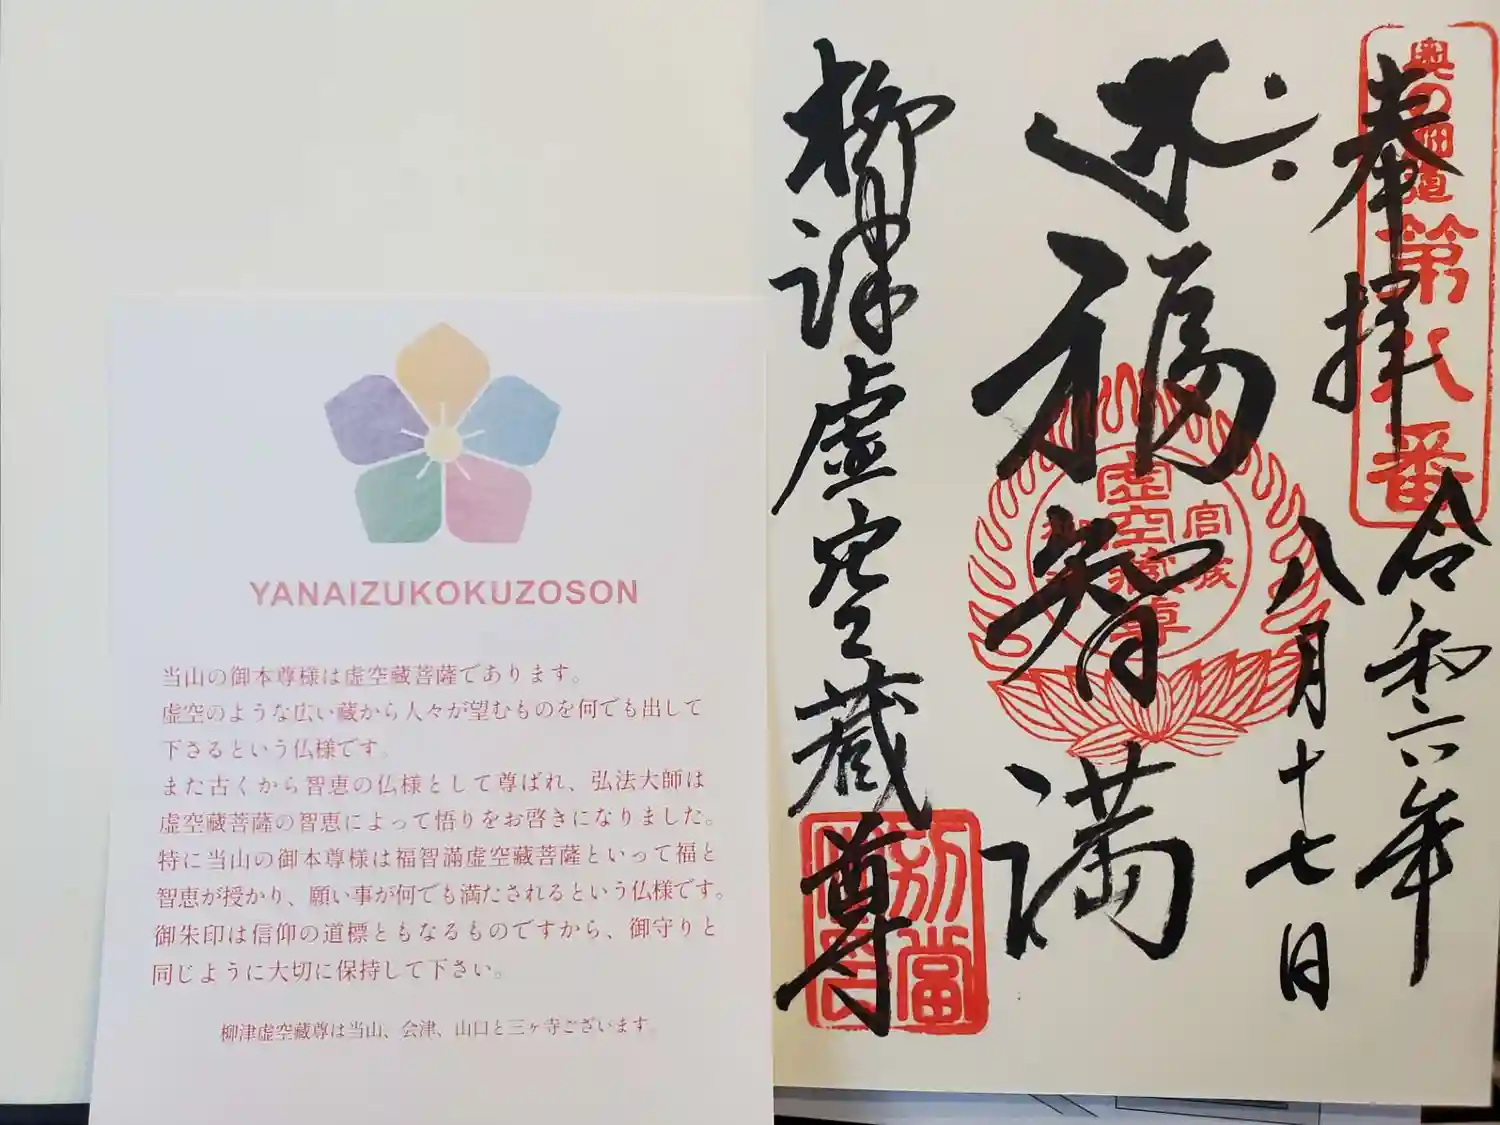 YANAIZUKOKUZOSON
当山の御本尊様は虚空蔵菩薩であります。
虚空のような広い蔵から人々が望むものを何でも出して
下さるという仏様です。
また古くから智恵の仏様として尊ばれ、弘法大師は
虚空蔵菩薩の智恵によって悟りをお啓きになりました。
特に当山の御本尊様は福智滿虚空蔵菩薩といって福と
智恵が授かり、願い事が何でも満たされるという仏様です。
御朱印は信仰の道標ともなるものですから、御守りと
同じように大切に保持して下さい。
柳津虚空蔵尊は当山、会津、山口と三ヶ寺ございます。
奥の細道
第八番
奉拝
令和六年
八月十七日
福智満
虚空蔵尊
宮城
柳津虚空蔵尊
別當